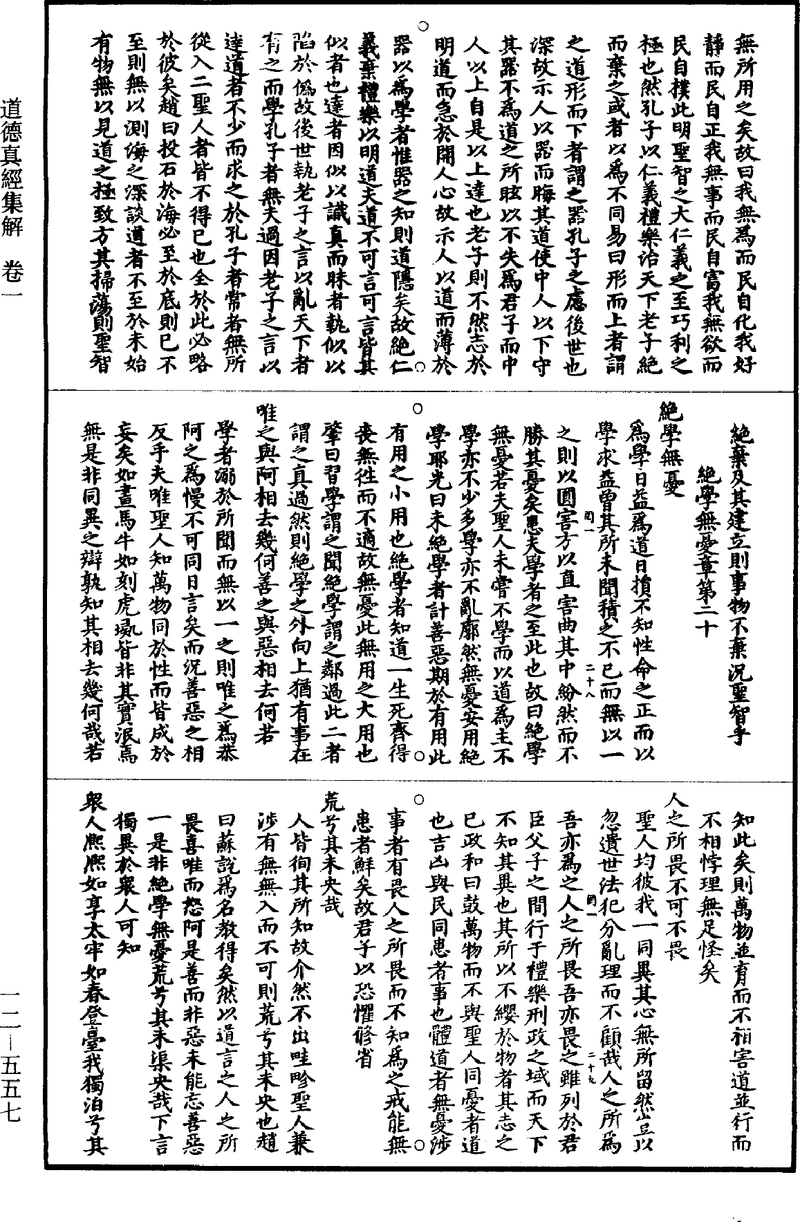 道德真經集解　卷一
無所用之矣故曰我無為而民自化我好
靜而民自正我無事而民自富我無欲而
民自撲此明聖智之大仁義之至巧利之
極也然孔子以仁義禮樂治天下老子絕
而棄之或者以為不同易曰形而上者謂
之道形而下者謂之器孔子之慮後世也
深故示人以器而晦其道使中人以下守
其器不為道之所眩以不失為君子而中
人以上自是以上達也老子則不然志於
明道而急於開人心故示人以道而薄於
器以為學者惟器之知則道隱矣故絕仁
義棄禮樂以明道夫道不可言可言皆其
似者也達者因似以識真而昧者執似以
陷於偽故後世執老子之言以亂天下者
有之而學孔子者無大過因老子之言以
達道者不少而求之於孔子者常苦無所
從入二聖人者皆不得已也全於此必略
於彼矣趙曰投石於海必至於底則已不
至則無以測海之深談道者不至於未始
有物無以見道之極致方其掃蕩則聖智
絕棄及其建立則事物不棄況聖智乎
絕學無憂章第二十
絕學無憂
為學日益為道日損不知性命之正而以
學求益增其所未聞積之不已而無以一
之則以圓害方以直害曲其中紛然而不
勝其憂矣患夫學者之至此也故曰絕學
無憂若夫聖人未嘗不學而以道為主不
學亦不少多學亦不亂廓然無憂安用絕
學耶光曰未絕學者計善惡期於有用此
有用之小用也絕學者知道一生死齊得
喪無往而不適故無憂此無用之大用也
肇曰習學謂之聞絕學謂之鄰過此二者
謂之真過然則絕學之外向上猶有事在
唯之與阿相去幾何善之與惡相去何若
學者溺於所聞而無以一之則唯之為恭
阿之為慢不可同日言矣而況善惡之相
反乎夫唯聖人知萬物同於性而皆成於
妄矣如畫馬牛如刻虎彘皆非其實泯焉
無是非同異之辯孰知其相去幾何哉若
知此矣則萬物並育而不相害道並行而
不相悖理無足怪矣
人之所畏不可不畏
聖人均彼我一同異其心無所留然豈以
忽遺世法犯分亂理而不顧哉人之所為
吾亦為之人之所畏吾亦畏之雖列於君
臣父子之間行于禮樂刑政之域而天下
不知其異也其所以不纓於物者其志之
已政和曰鼓萬物而不與聖人同憂者道
也吉凶與民同患者事也體道者無憂涉
事者有畏人之所畏而不知為之戒能無
患者鮮矣故君子以恐懼修省
荒兮其未央哉
人皆徇其所知故介然不出畦畛聖人兼
涉有無無入而不可則荒兮其未央也趙
曰蘇說為名教得矣然以道言之人之所
畏喜唯而怒阿是善而非惡未能忘善惡
一是非絕學無憂荒兮其未渠央哉下言
獨異於眾人可知
眾人熙熙如享太牢如春登臺我獨泊兮其
一二－五五七